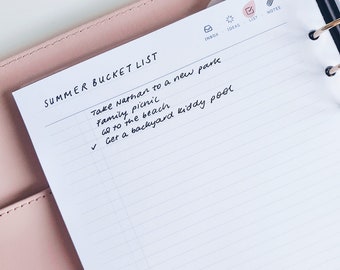 INBOX IDEAS LIST NOTES
SUMMER BUCKET LIST
Take Nathan to a new park
Family picnic
Go to the beach
✓ Get a backyard kiddy pool